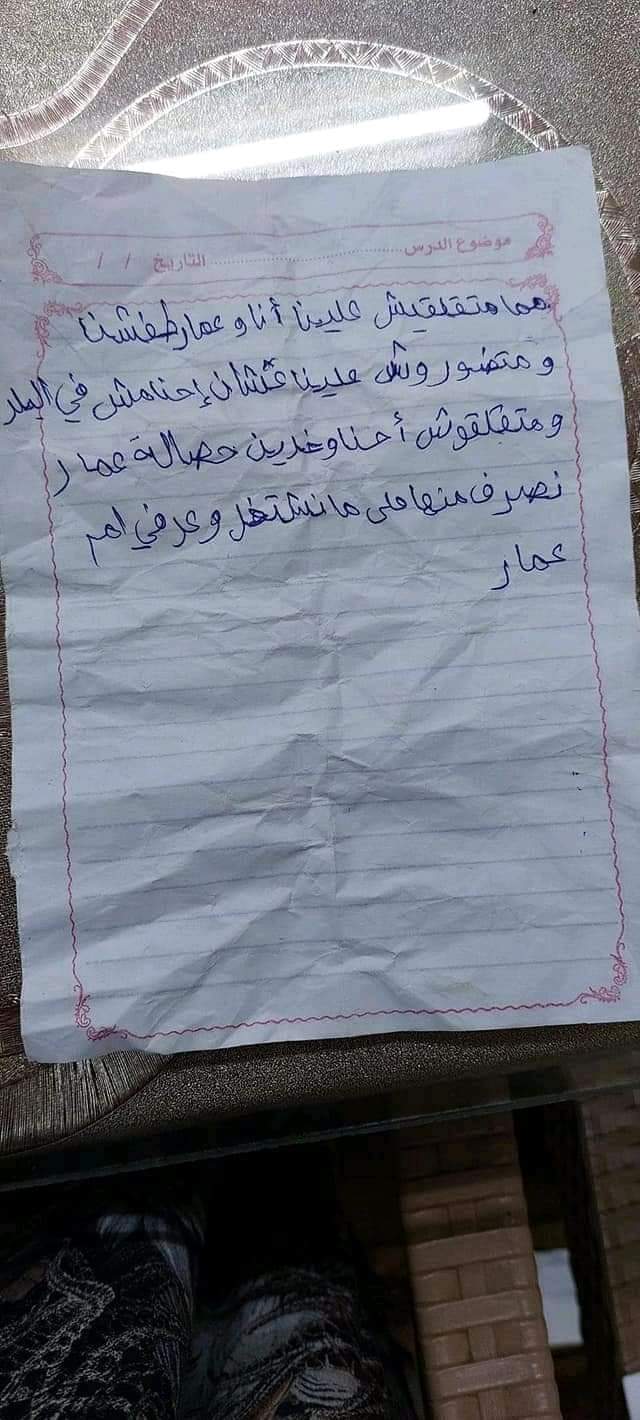 موضوع الدرس .................................... التاريخ / /
مما متقلقيش علينا أنا و عمار طفشنا
و متضوروش علينا عشان إحنا مش في البلد
و متقلقوش أحنا وخدين حصالة عمار
نصرف منها على ما نشتغل وعرفي ام
عمار